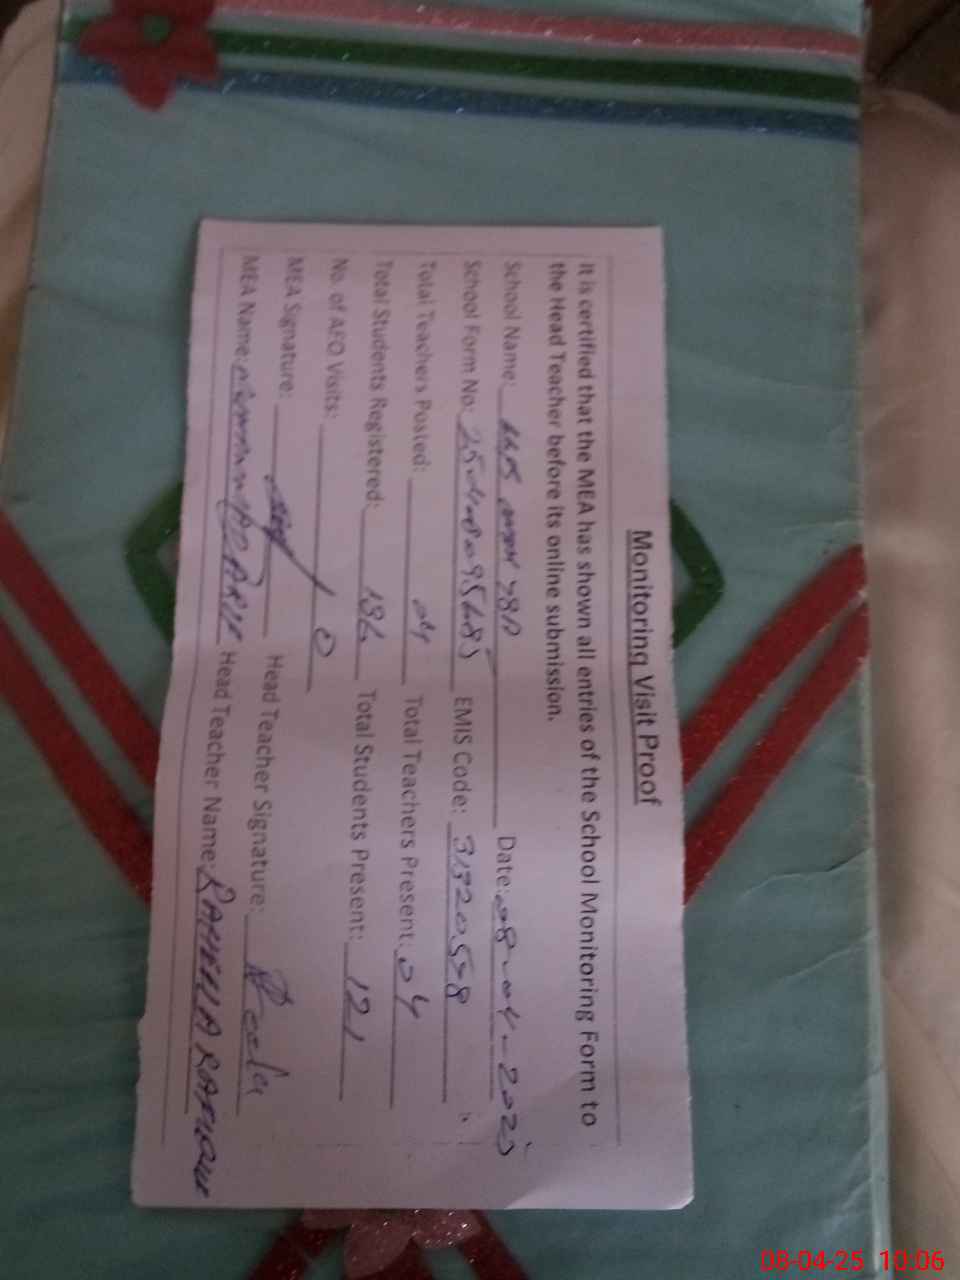 Monitoring Visit Proof
It is certified that the MEA has shown all entries of the School Monitoring Form to
the Head Teacher before its online submission.
School Name: Date: 08-04-2025
School Form No: EMIS Code: 31320558
Total Teachers Posted: 04 Total Teachers Present: 04
Total Students Registered: 136 Total Students Present: 121
No. of AEO Visits: 0
MEA Signature: Head Teacher Signature:
MEA Name: Head Teacher Name:
08-04-25 10:06